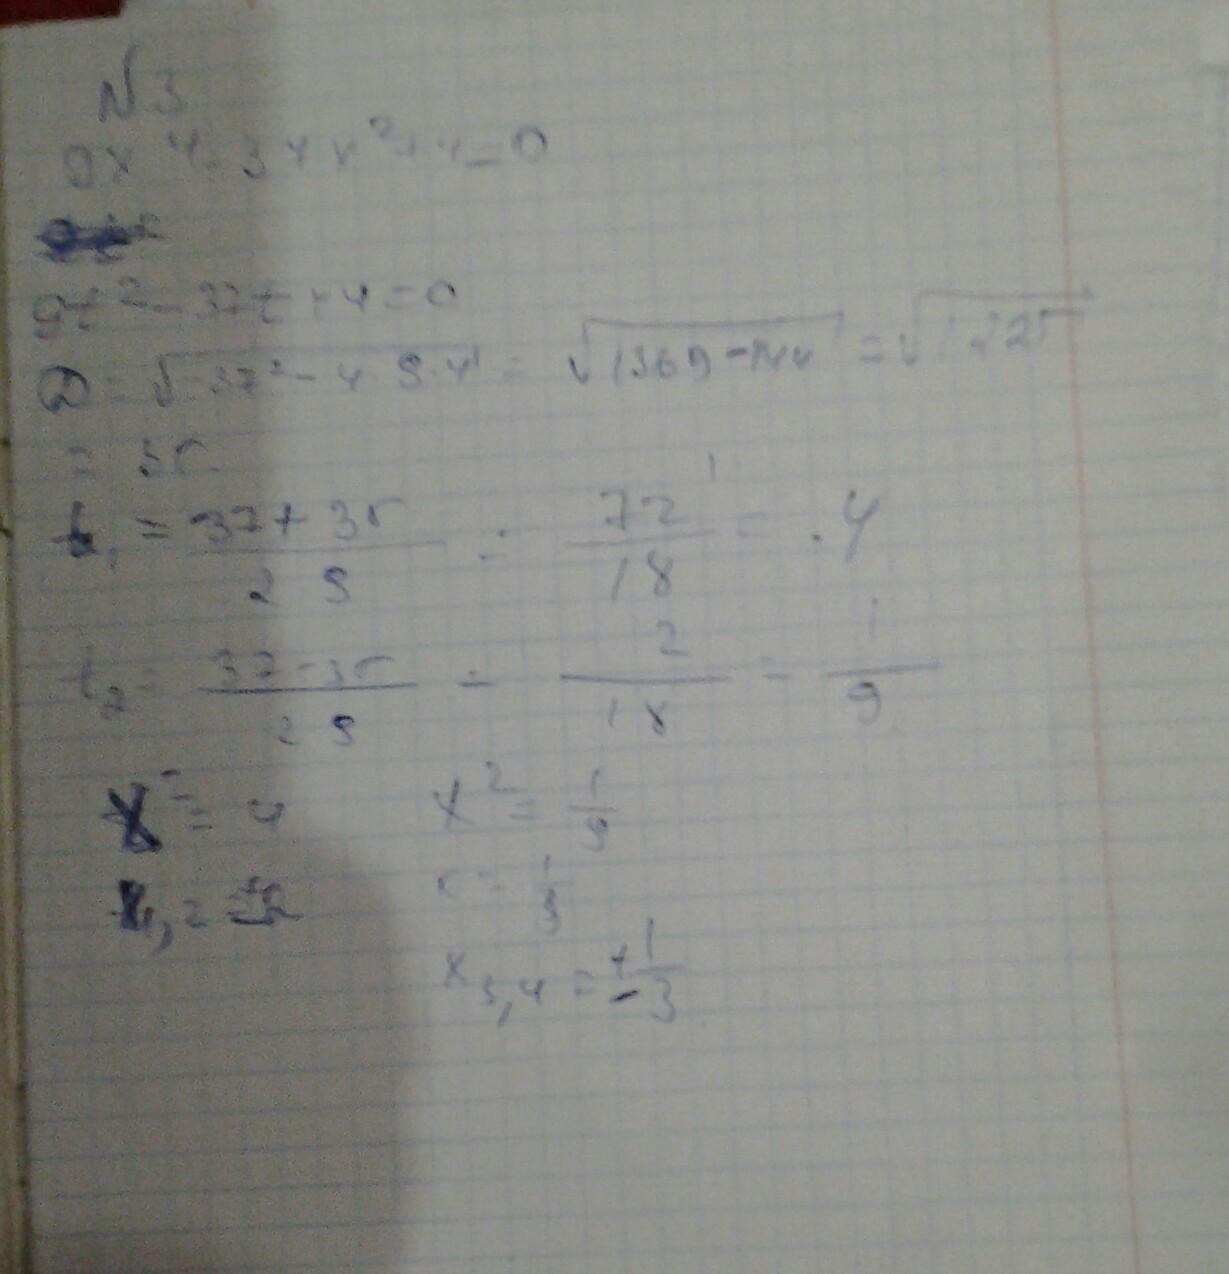 N3
9x⁴-37x²+4=0
9t²-37t+4=0
D=√-37²-4·9·4 = √1369-144 = √1225
= 35
t₁ = 37+35/2·9 = 72/18 = 4
t₂ = 37-35/2·9 = 2/18 = 1/9
x² = 4 x² = 1/9
x = 1/3
₁,₂ = ±2
x₃,₄ = ±1/3